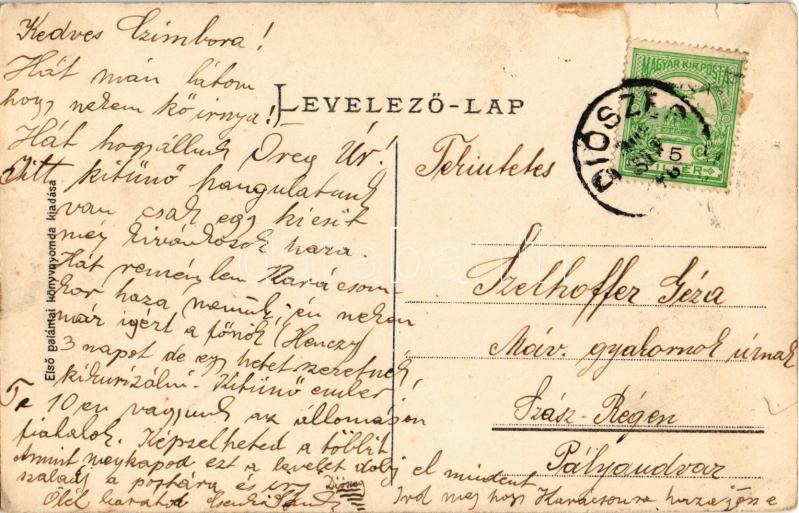 Kedves Czimbora!
Hát mán látom
hogy nekem kö irnya!
Hát hogy állunk Öreg Úr!
Itt kitünő hangulatunk
van csak egy kicsit
meg kivánkozok haza.
Hát remélem Karacsony
kor haza megyünk, én nekem
már igért a főnök (Henczy)
3 napot de egy hetet szeretnék
kikunizálni. Kitünő ember
10-en vagyunk az állomáson
fiatalok. Képzelheted a többit
Amint megkapod ezt a levelet dobj el mindent
szaladj a postára és irj
Ölel barátod
Irod meg hogy Karacsonra haza jösz e
LEVELEZŐ-LAP
MAGYAR KIR. POSTA
5
FILLÉR
DIÓSZEG
Tekintetes
Szelhoffer Géza
Máv. gyakornok úrnak
Szász-Régen
Pályaudvar
Első palántai könyvnyomda kiadása
darabanth